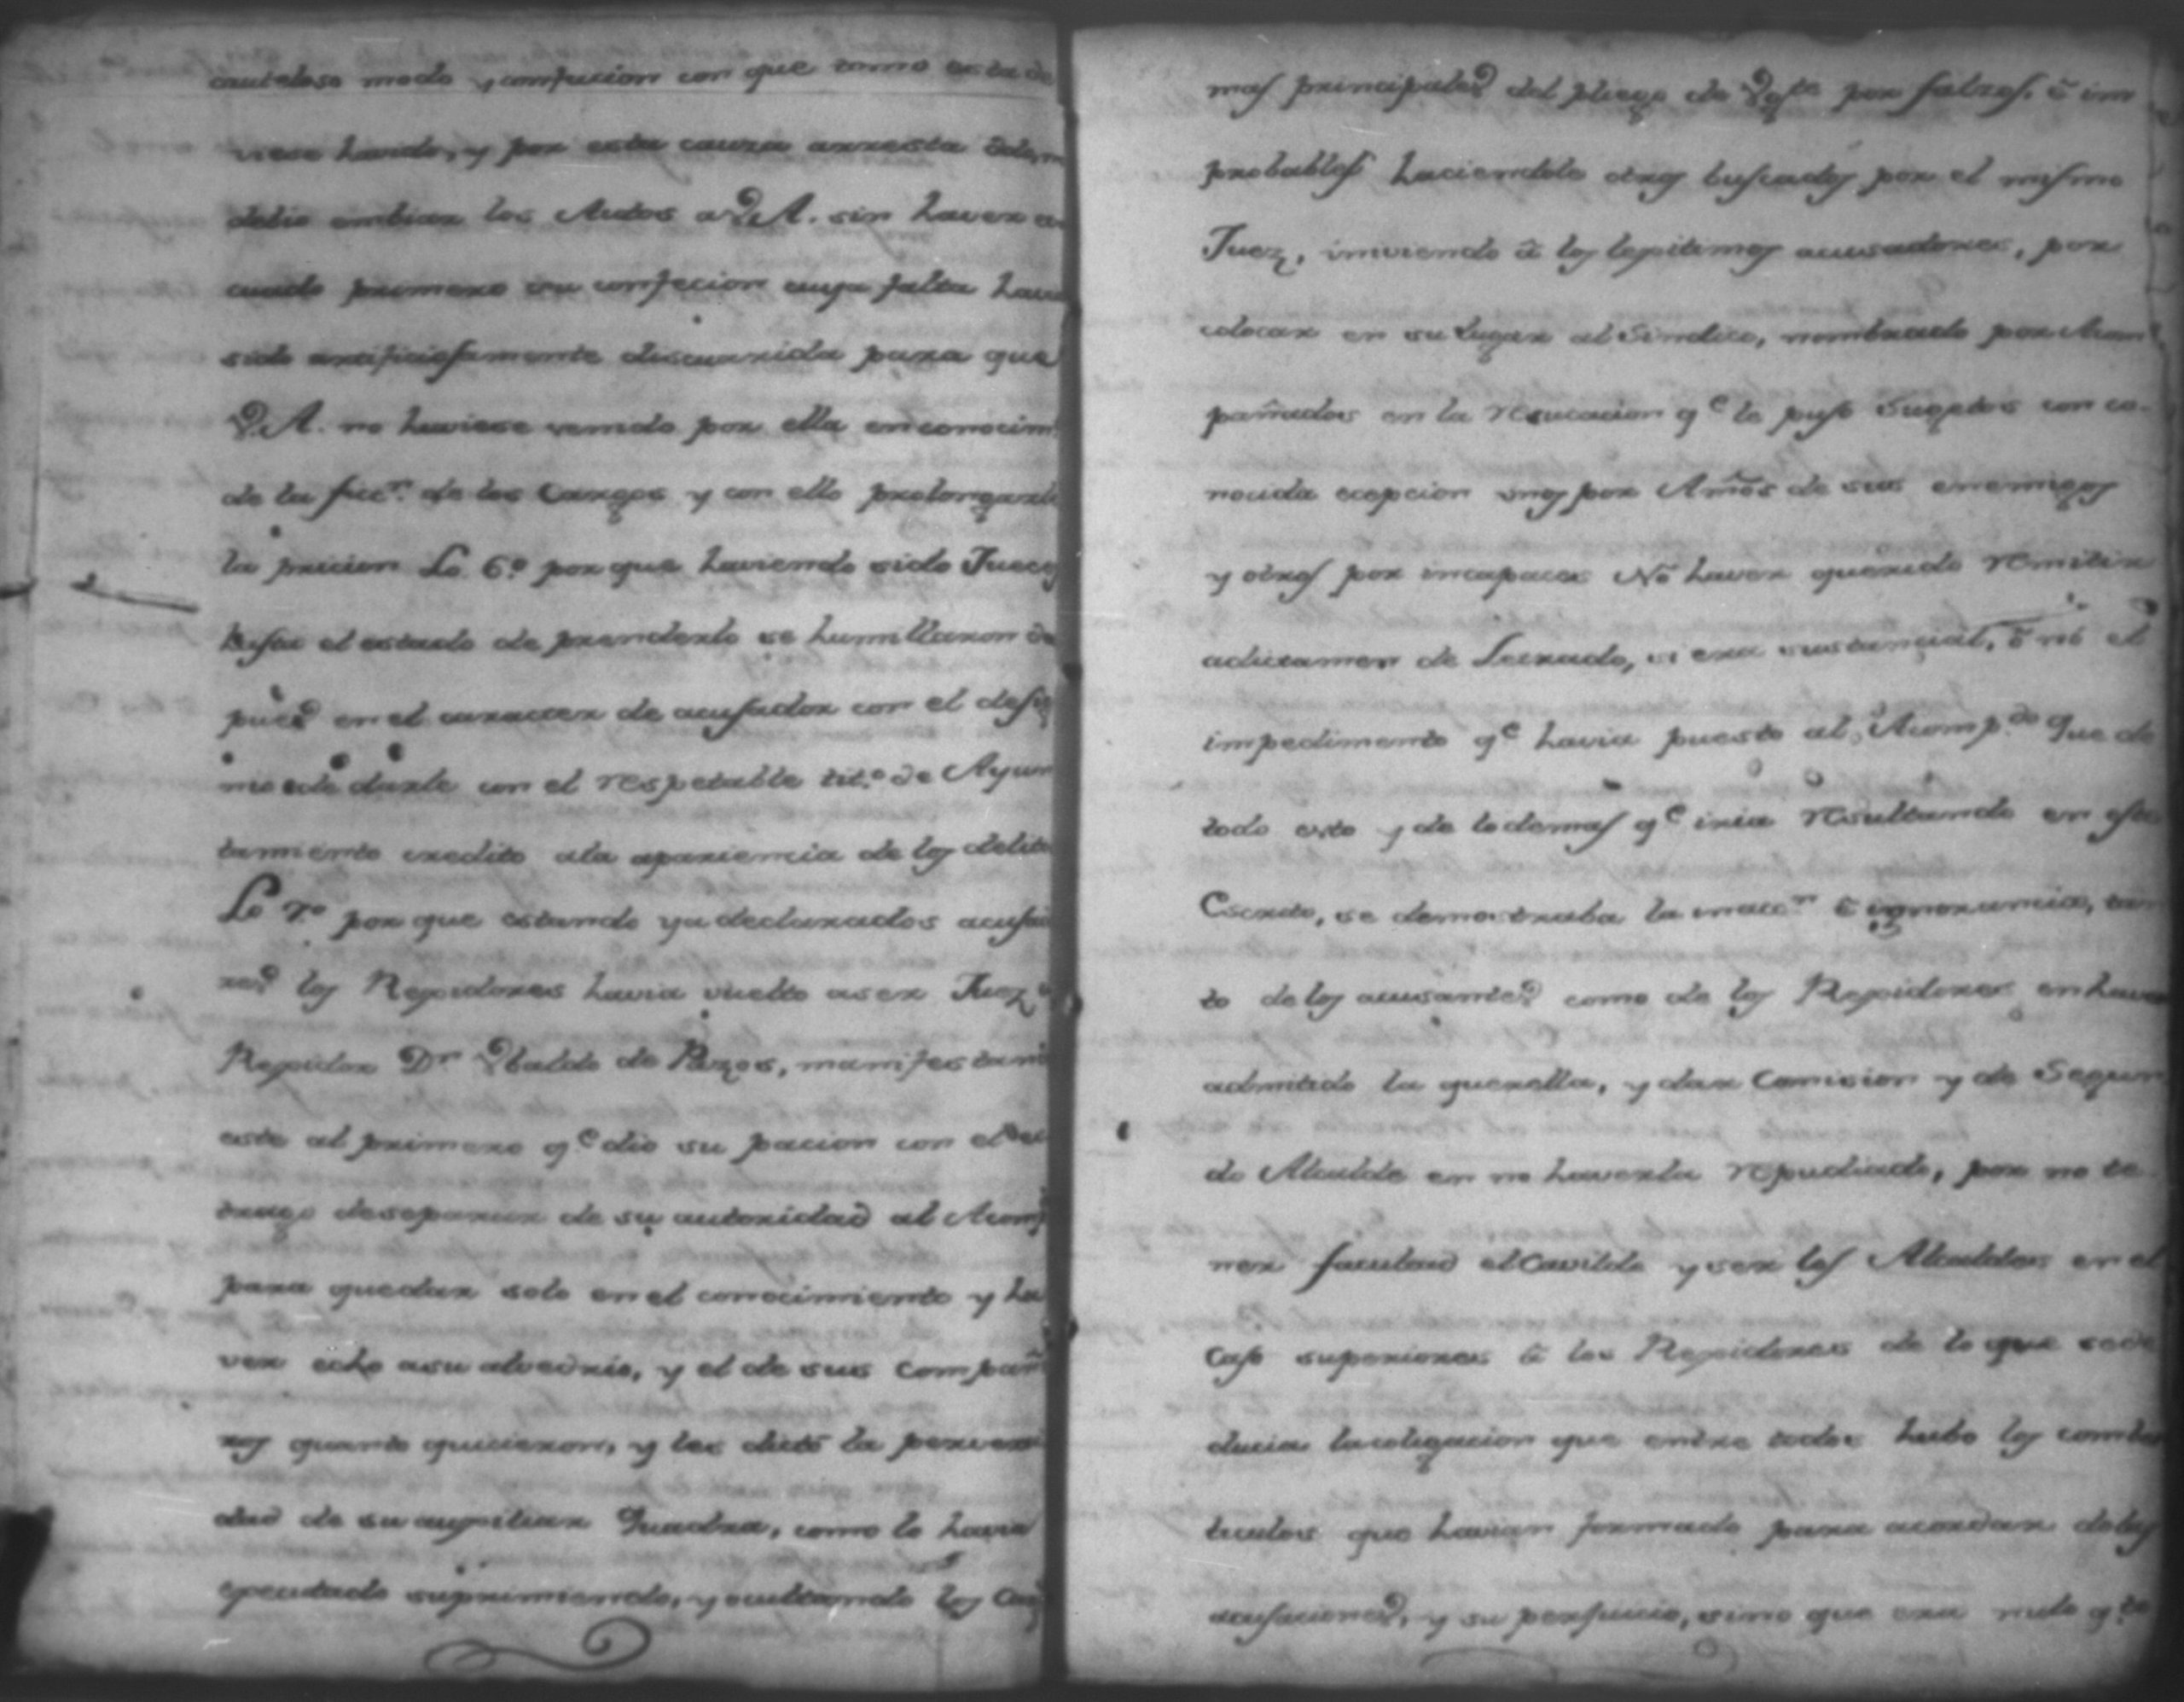 cauteloso modo y confucion con que tomo esta de
viese havido, y por esta causa arresta
debio embiar los Autos a V.A. sin haver
cuado primero su confecion cuya falta havia
sido artificiosamente discurrida para que
V.A. no huviese venido por ella en conocim
de la ficcn. de los Cargos y con ello prolongarle
la pricion Lo 6.º por que haviendo sido Jueces
hasta el estado de prenderlo se humillaron
pues en el caracter de acusador con el
de darle con el respetable tit.º de Ayun
tamiento credito ala apariencia de los delito
Lo 7.º por que estando ya declarados acusa
res los Regidores havia vuelto aser Juez
Regidor Dn Vbaldo de Pazos, manifestan
este al primero q.e dio su pacion con el
desoparar de su autoridad al Acomp
para quedar solo en el conocimiento y ha
ver echo asu alvedrio, y el de sus compañ
ros quanto quicieron, y les dictó la perversi
dad de su auxiliar Quadra, como lo havia
egecutado suprimiendo, y ocultando los
mas principales del pliego de por falsos, ó im
probables haciendole otros buscados por el mismo
Juez, á los legitimos acusadores, por
colocar en su lugar al Sindico, nombrado por Acom
pañados en la recucacion q.e le puso Sugetos con co-
nocida ecepcion vnos por Amos. de sus enemigos
y otros por incapaces No haver querido remitir
adictamen de Letrado, si era sustancial, ó nó el
impedimento q.e havia puesto al Acomp.do Que de
todo esto y de lodemas q.e iria resultando en este
Escrito, se demostraba la ó ignorancia, tan
to delos acusantes como de los Regidores en haver
admitido la querella, y dar Comision y de Segun
do Alcalde en no haverla repudiado, por no te
ner facultad el Cavildo y ser los Alcaldes en el
Caso superiores á los Regidores de lo que sede
ducia lacoligacion que entre todos hubo los
ticulos que havian formado para acordar delas
acusaciones, y su perjuicio, sino que era nulo q.to